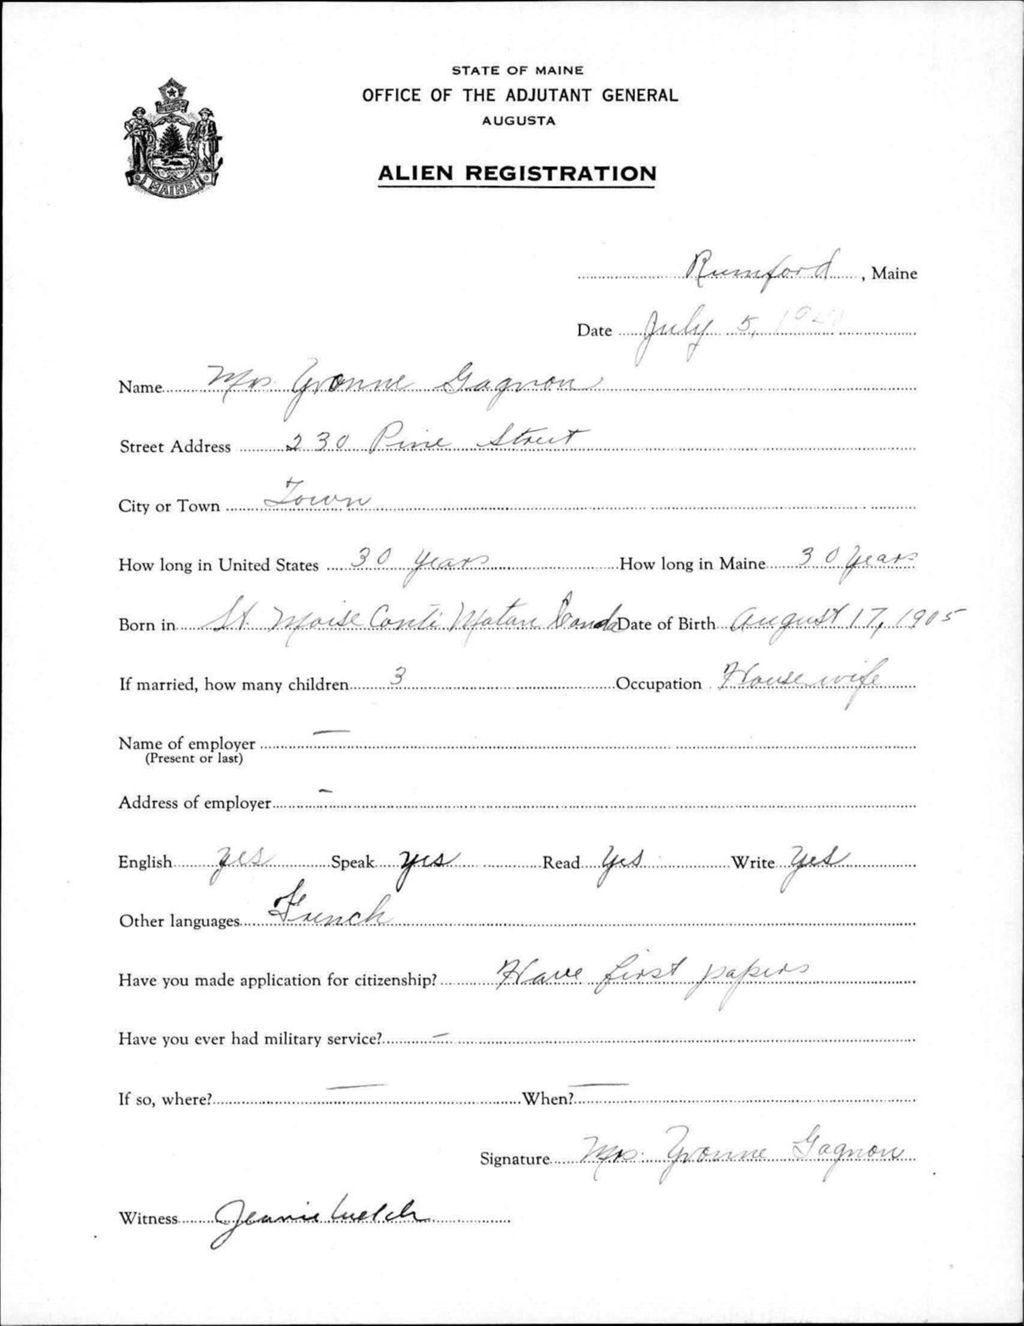 STATE OF MAINE
OFFICE OF THE ADJUTANT GENERAL
AUGUSTA
MAINE
ALIEN REGISTRATION
Rumford, Maine
Date July 5,
Name Mrs. Yvonne Gagnon
Street Address 230 Pine Street
City or Town Town
How long in United States 30 years How long in Maine 30 years
Born in St. Moise Conti Matan Date of Birth August 17, 1905
If married, how many children 3 Occupation Housewife
Name of employer —
(Present or last)
Address of employer –
English yes Speak yes Read yes Write yes
Other languages French
Have you made application for citizenship? Have first papers
Have you ever had military service? –
If so, where? — When? —
Signature Mrs. Yvonne Gagnon
Witness Welch